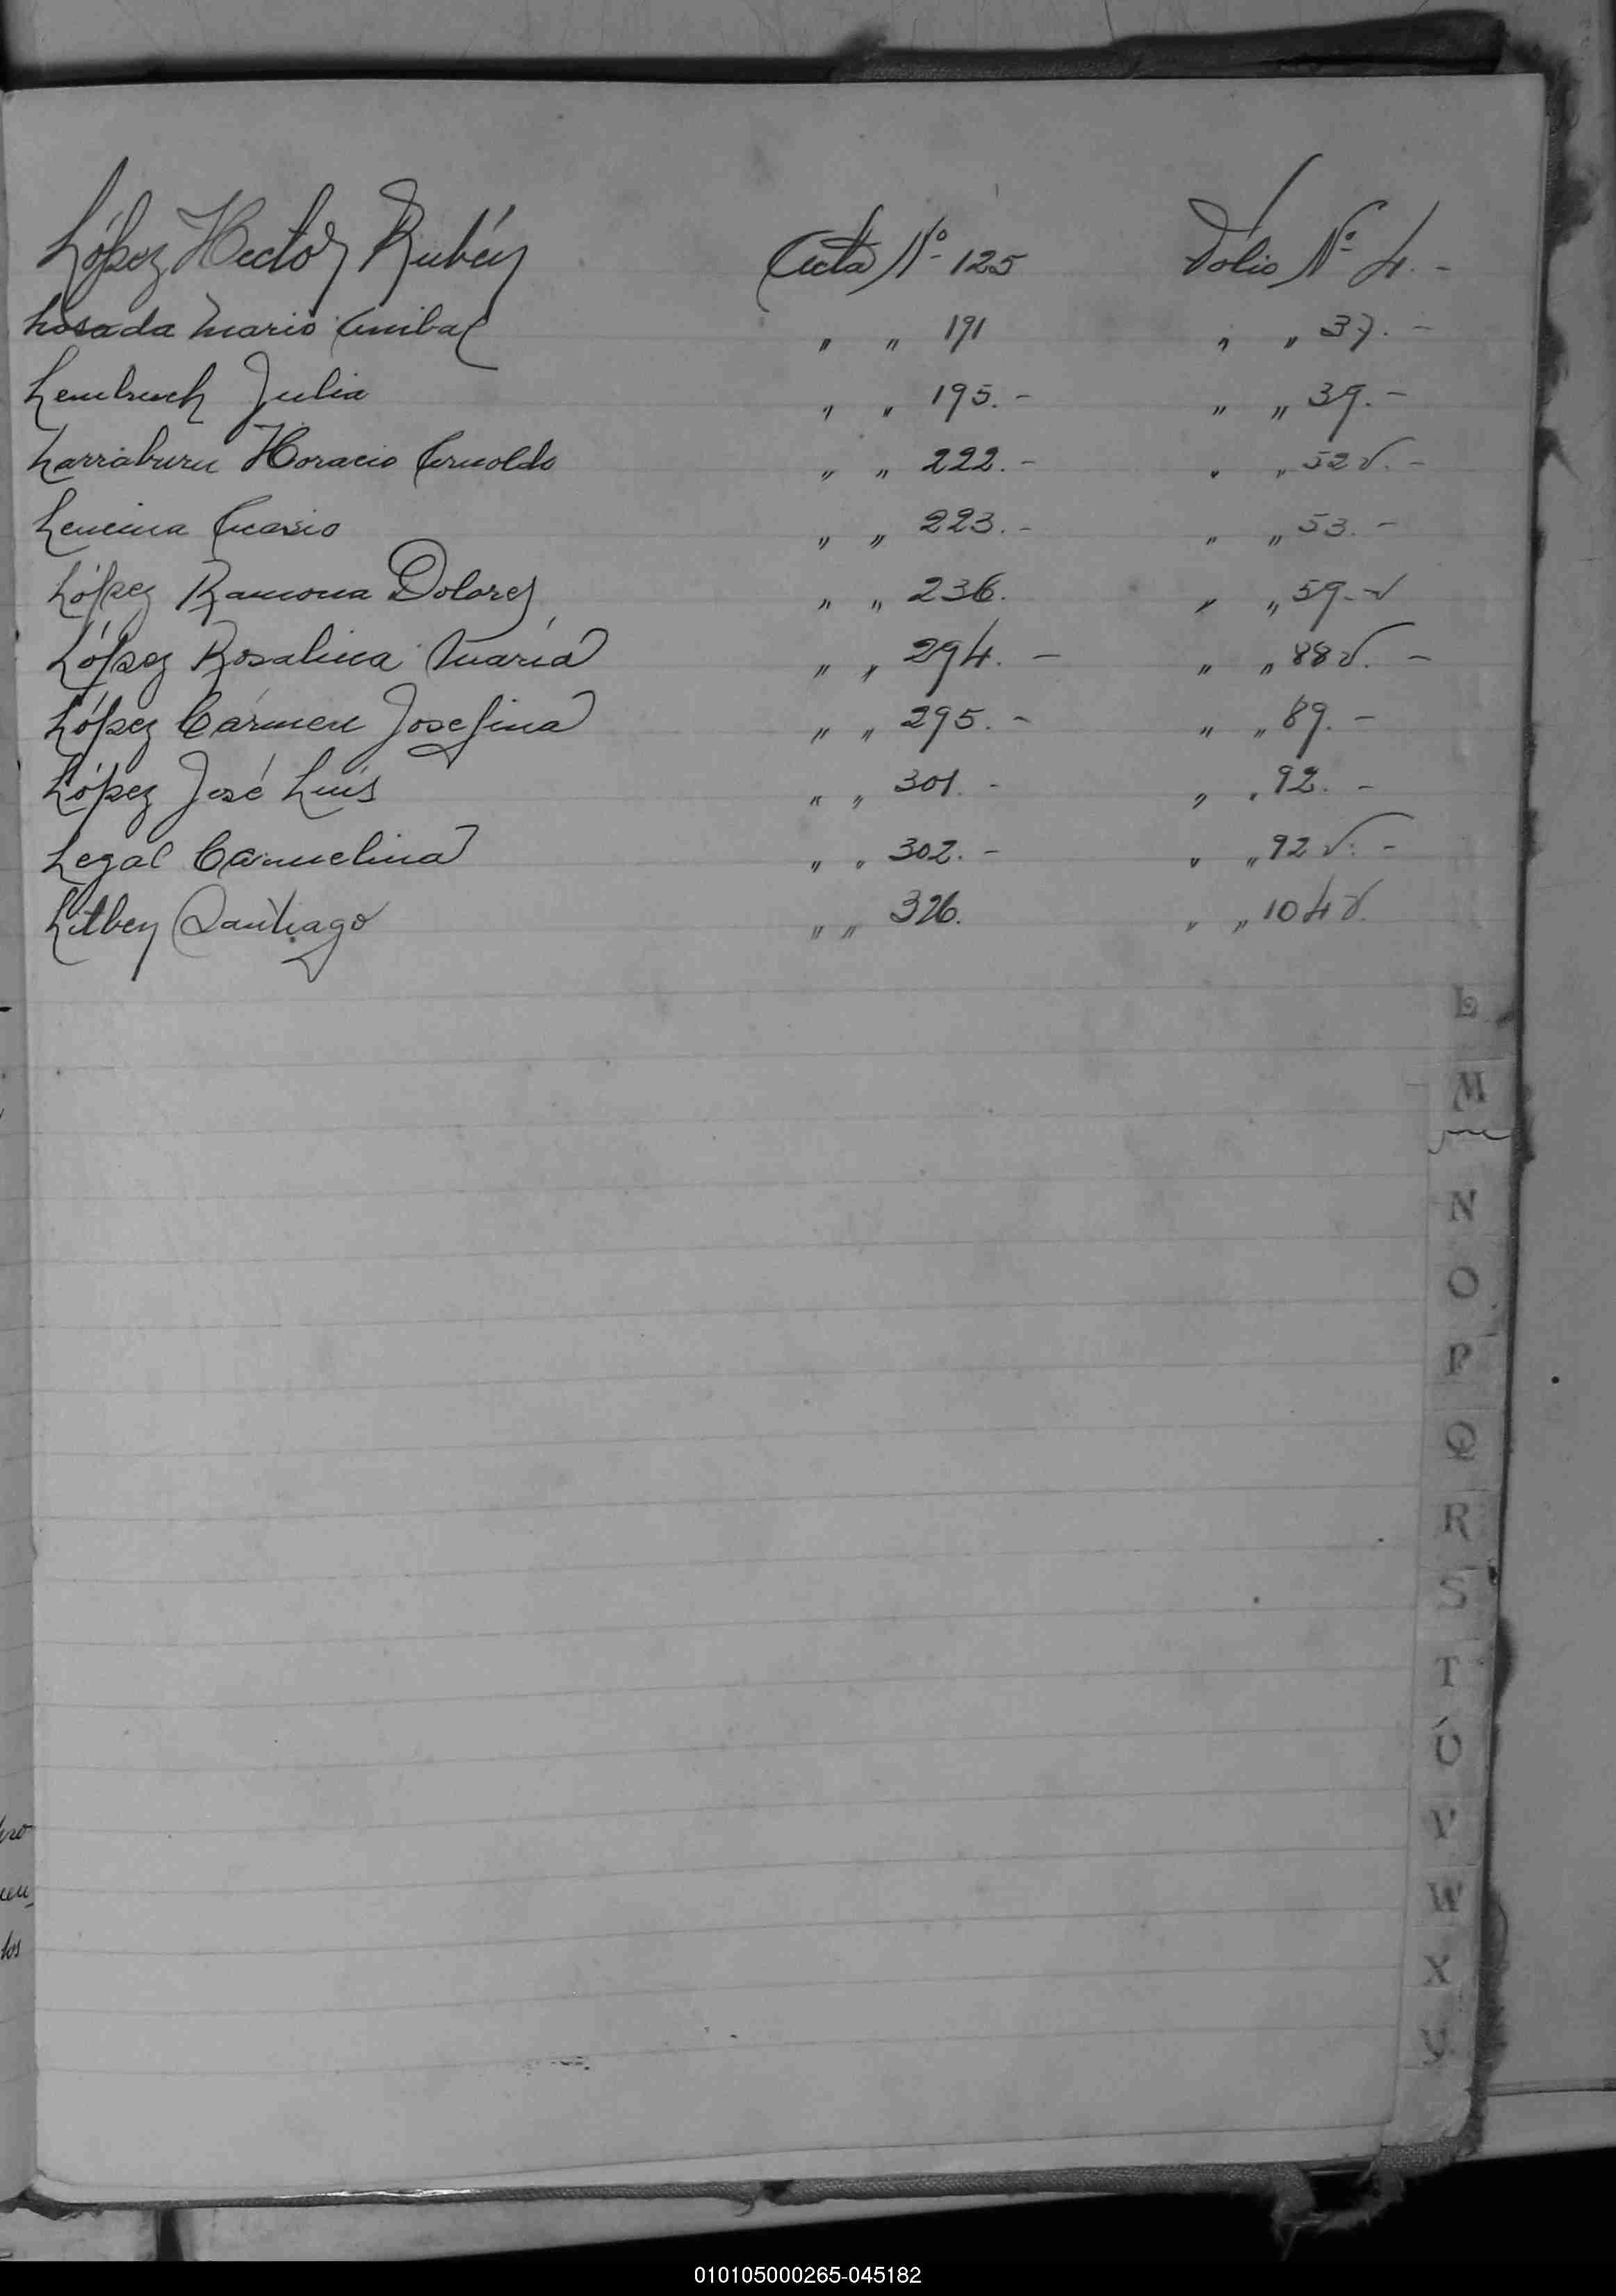 López Hector Rubén Acta Nº 125 Folio Nº 4.-
Losada Mario Anibal " " 191 " " 37.-
Lembruch Julia " " 195.- " " 39.-
Larraburu Horacio Arnoldo " " 222.- " " 52 v.-
Lencina Acasio " " 223.- " " 53.-
López Ramona Dolores " " 236. " " 59.-v
López Rosalina María " " 294.- " " 88 v.-
López Cármen Josefina " " 295.- " " 89.-
López José Luís " " 301.- " " 92.-
Legal Carmelina " " 302.- " " 92 v.-
Santiago " " 326. " " 104 v.
L
M
N
O
P
Q
R
S
T
U
V
W
X
Y
los
010105000265-045182